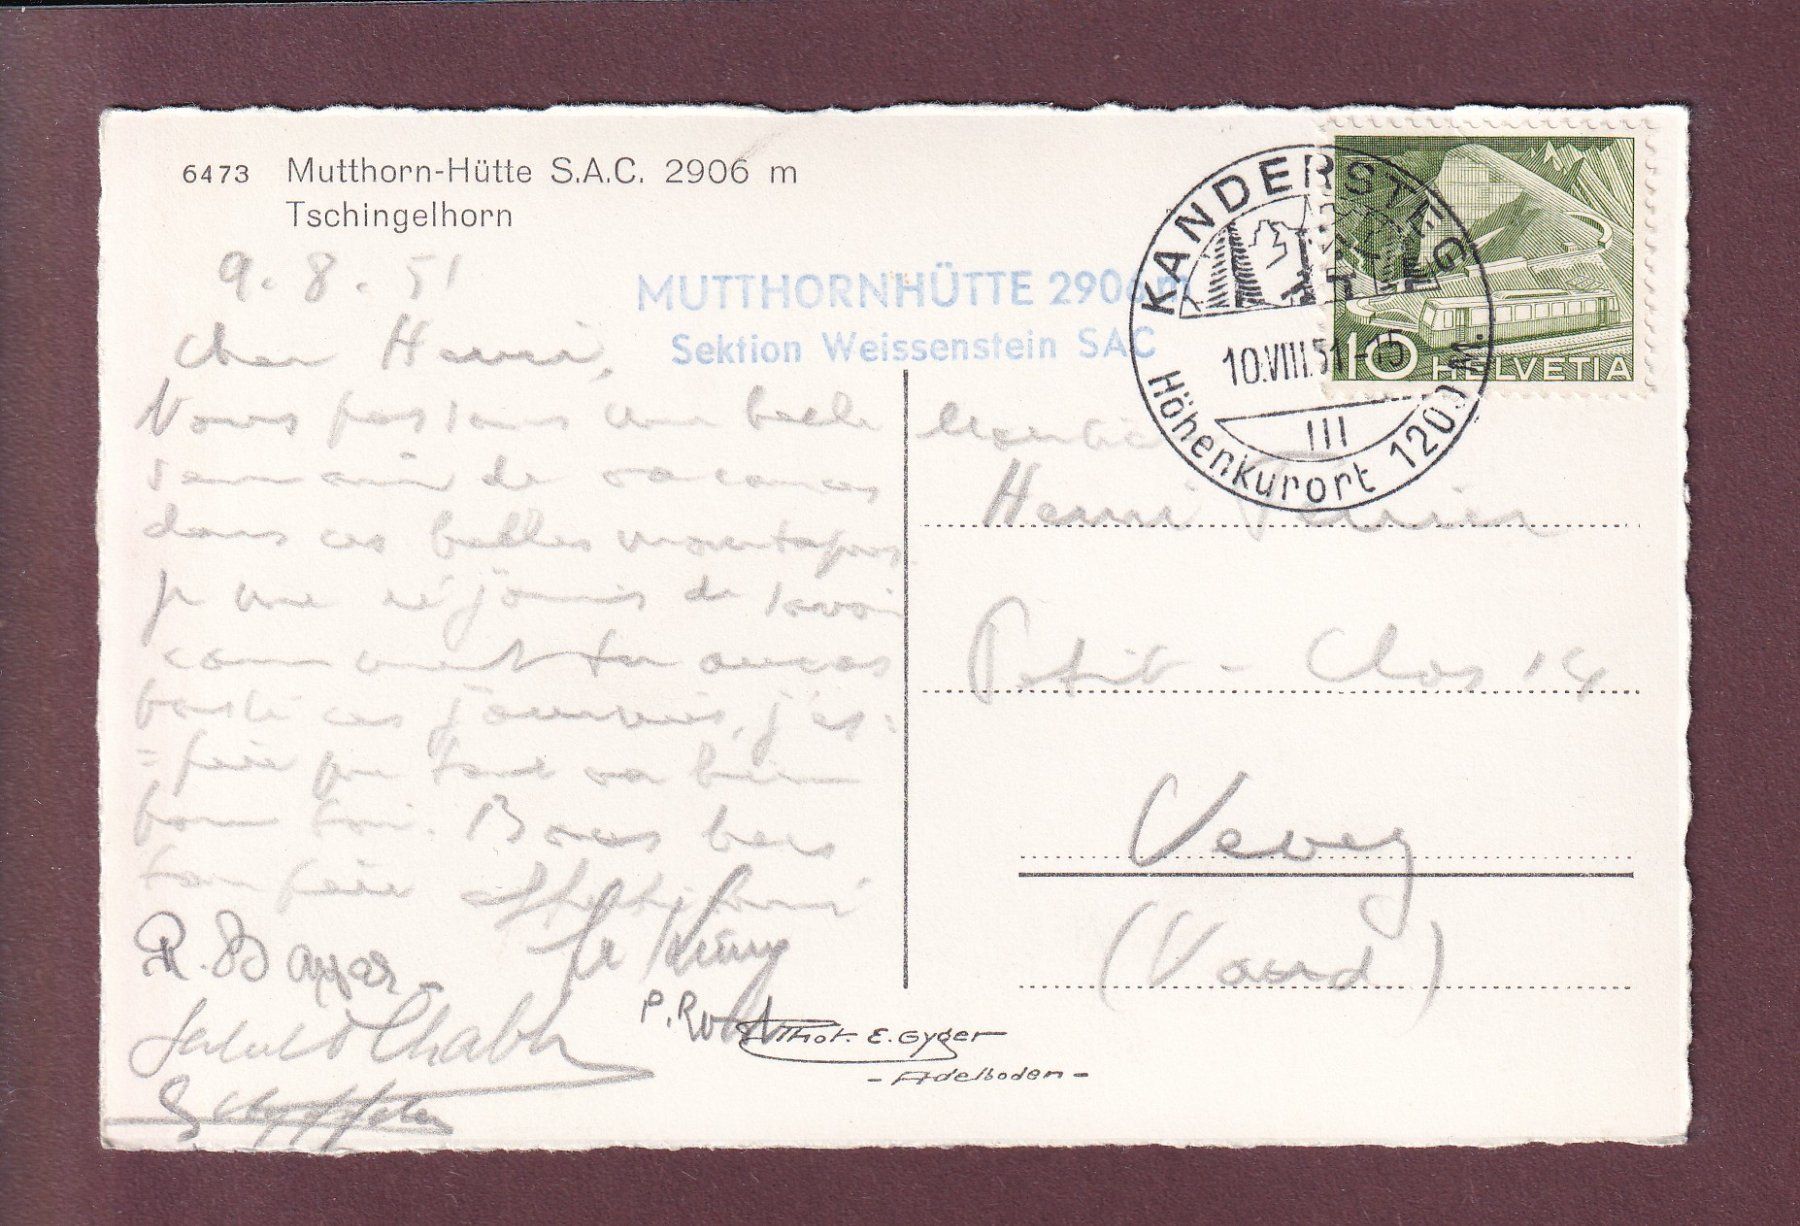 6473 Mutthorn-Hütte S.A.C. 2906 m
Tschingelhorn
MUTTHORNHÜTTE 2906 m
Sektion Weissenstein SAC
KANDERSTEG
10.VIII.51-15
III
Höhenkurort 1200 M.
10 HELVETIA
9.8.51
Cher Henri,
Nous passons une belle
semaine de vacances
dans ces belles montagnes
je me réjouis de savoir
comment tu auras
passé ces journées, j'es=
=père que tout va bien
pour toi. Bons
ton père
R.
P.
Phot. E. Gyger
- Adelboden -
Monsieur
Henri
Petit-Clos 14
Vevey
(Vaud)